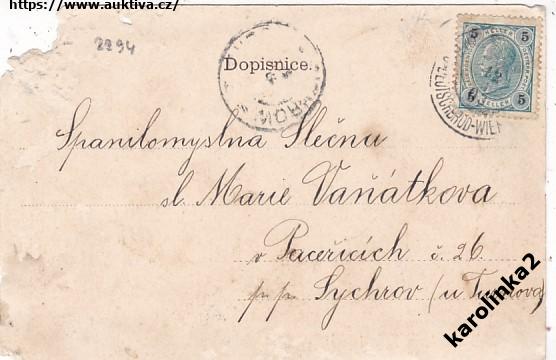 https://www.auktiva.cz/
2294
Dopisnice.
5 HELLER 5
5 HELLER 5
DEUTSCHBROD-WIEN
Spanilomyslna Slečna
sl. Marie Vaňátkova
v Paceřicích č. 26
p. p. Sychrov (u Turnova)
karolinka2